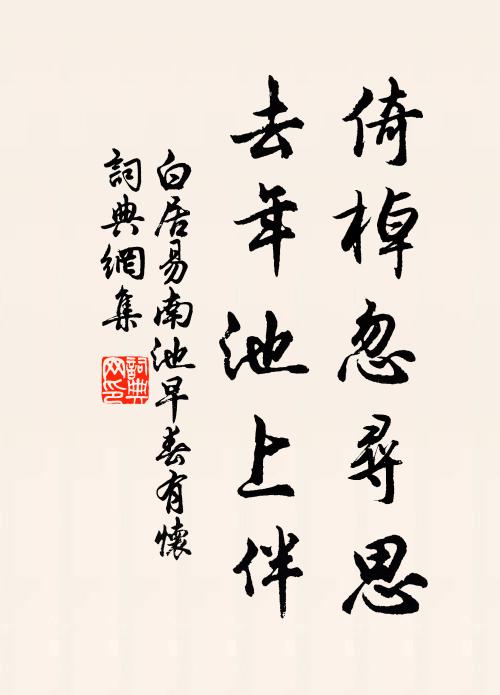 倚棹忽尋思
去年池上伴
白居易南池早春有懷
詞典網集
詞典網印